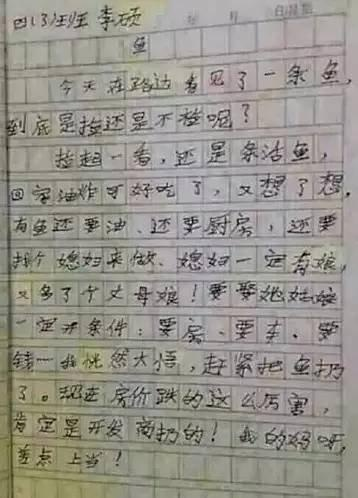 四(3)班 李硕
年 月 日
鱼
今天在路边看见了一条鱼,
到底是捡还是不捡呢?
捡起一看,还是条活鱼,
回家油炸可好吃了,又想了想,
有鱼还要油、还要厨房,还要
找个媳妇来做、媳妇一定有娘,
又多了个丈母娘!要娶她姑娘
一定开条件:要房、要车、要
钱…我恍然大悟,赶紧把鱼扔
了。现在房价跌的这么厉害,
肯定是开发商扔的!我的妈呀,
差点上当!